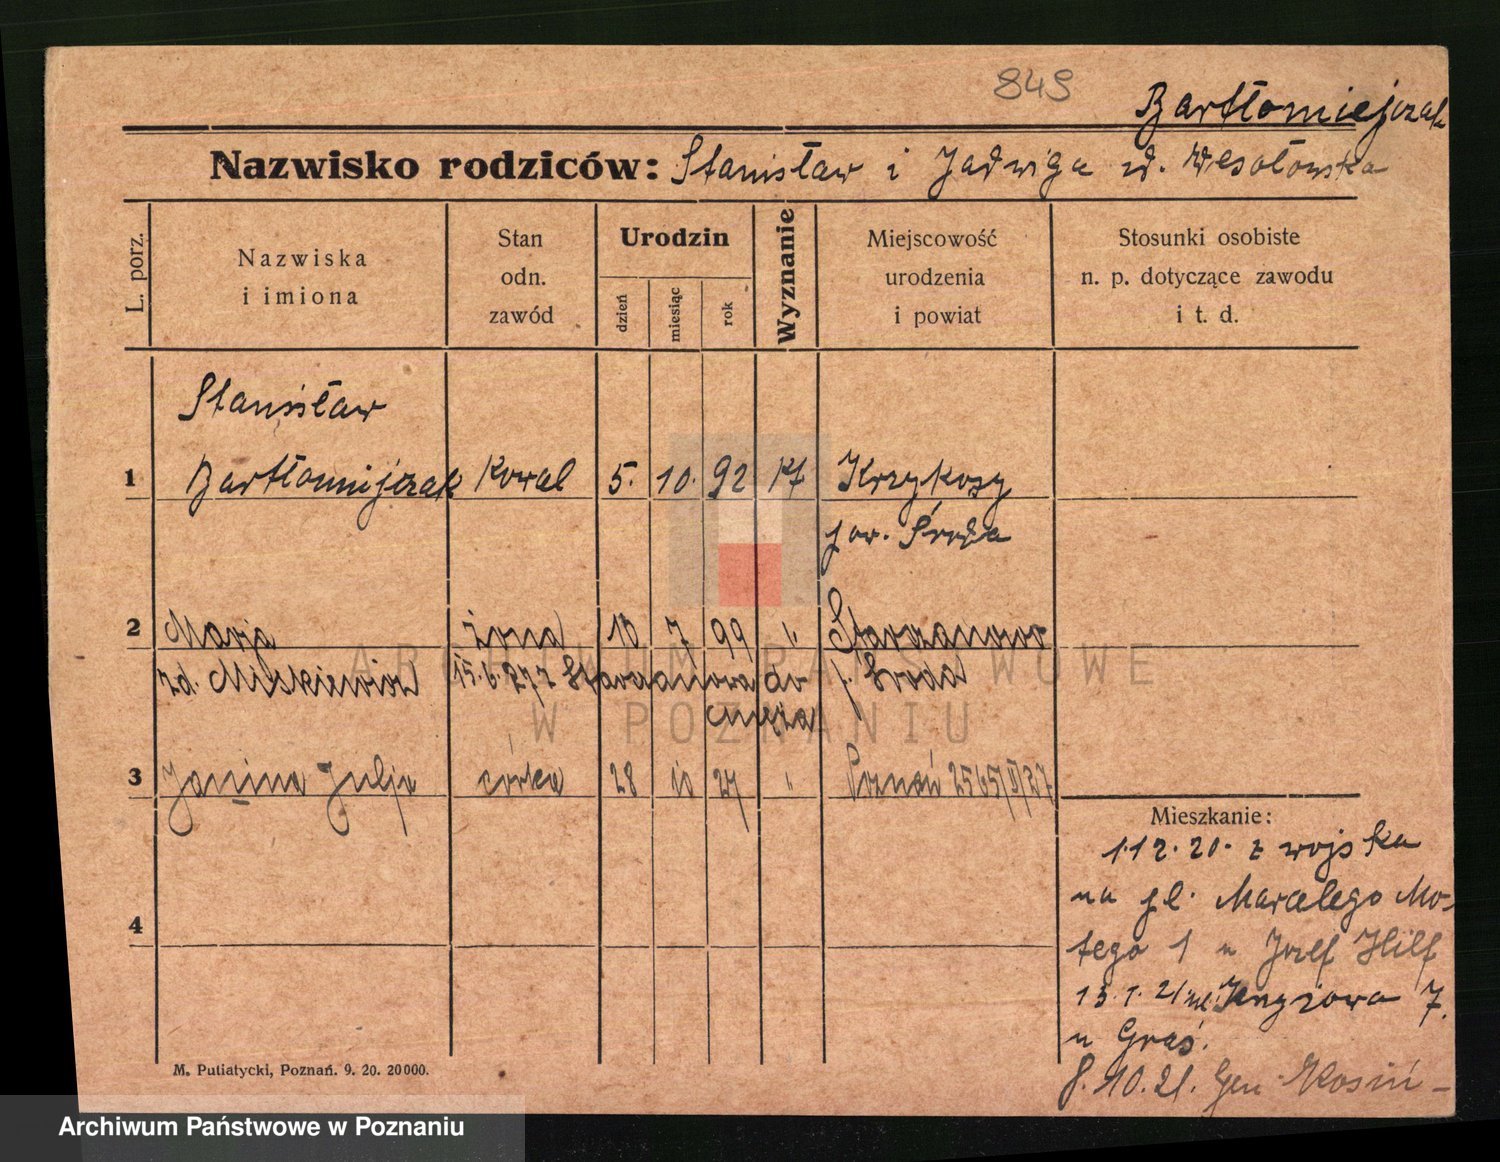 849
Bartłomiejczak
Nazwisko rodziców: Stanisław i Jadwiga zd. Wesołowska
L. porz.
Nazwiska
i imiona
Stan
odn.
zawód
Urodzin
dzień
miesiąc
rok
Wyznanie
Miejscowość
urodzenia
i powiat
Stosunki osobiste
n. p. dotyczące zawodu
i t. d.
Stanisław
1 Bartłomiejczak Kowal 5. 10. 92 kt Krzykosy
pow. Środa
2 Marja żona 10 7 99 "
zd. 15.6.277 do p. Środa
męża
3 Janina Julja córka 28 10 27 " Poznań 2565/II/27
4
Mieszkanie:
1.12.20. z wojska
na pl. Marcelego Mo-
tego 1 u Józef Hilf
13.1.21 ul. Krzyżowa 7.
u Graś.
8.10.21. Gen. Kosiń-
M. Putiatycki, Poznań. 9. 20. 20000.
ARCHIWUM PAŃSTWOWE
W POZNANIU
Archiwum Państwowe w Poznaniu